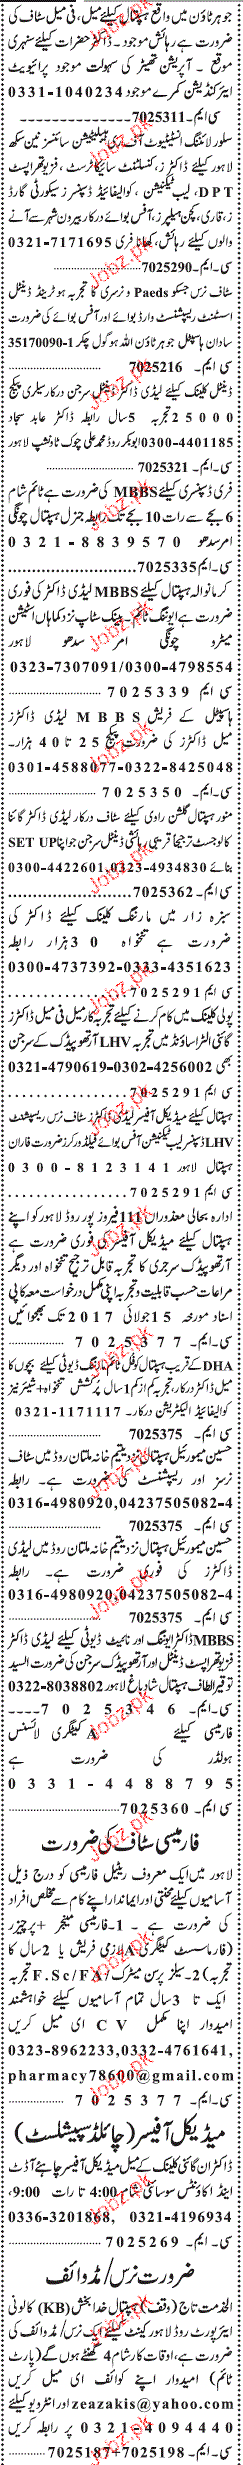 جوہر ٹاؤن میں واقع ہسپتال کیلئے میل، فی میل سٹاف کی
ضرورت ہے رہائش موجود۔ ڈاکٹر حضرات کیلئے سنہری
موقع۔ آپریشن تھیٹر کی سہولت موجود پرائیویٹ
ایئرکنڈیشن کمرے موجود 0331-1040234
سی ایم۔7025311
سلور لائننگ انسٹیٹیوٹ آف ری ہیبلیٹیشن سائنسز نین سکھ
لاہور کیلئے ڈاکٹرز، کنسلٹنٹ سائیکاٹرسٹ، فزیوتھراپسٹ
DPT، لیب ٹیکنیشن، کوالیفائیڈ ڈسپنسر سیکورٹی گارڈ
ز، قاری، کچن ہیلپرز، آفس بوائے درکار بیرون شہر سے آنے
والوں کیلئے رہائش، کھانا فری 0321-7171695
سی۔ایم۔7025290
سٹاف نرس جسکو Paeds و نرسری کا تجربہ ہو ٹرینڈ ڈینٹل
اسسٹنٹ ریسپشنسٹ وارڈ بوائے اور آفس بوائے کی ضرورت
سادان ہاسپٹل جوہر ٹاؤن اللہ ہو گول چکر 1-35170090
سی۔ایم۔ 7025216
ڈینٹل کلینک کیلئے لیڈی ڈاکٹر ڈینٹل سرجن درکار سیلری پیکج
25000 تجربہ 5 سال رابطہ ڈاکٹر عابد سجاد
0300-4401185 ابوبکر روڈ محمد علی چوک ٹاؤنشپ لاہور
سی۔ایم۔ 7025321
فری ڈسپنسری کیلئے MBBS کی ضرورت ہے ٹائم شام
6 بجے سے رات 10 بجے تک رابطہ جنرل ہسپتال چونگی
امرسدھو 0321-8839570
سی۔ایم۔7025335
کرمانوالہ ہسپتال کیلئے MBBS لیڈی ڈاکٹر کی فوری
ضرورت ہے ایوننگ ٹائم۔ بینک سٹاپ نزد کماہاں اسٹیشن
میٹرو چونگی امر سدھو لاہور
0323-7307091/0300-4798554
سی ایم 7025339
ہاسپٹل کے فریش MBBS لیڈی ڈاکٹرز
میل ڈاکٹرز کی ضرورت پیکج 25 تا 40 ہزار۔
0301-4588077-0322-8425048
سی ایم۔ 7025350
منور ہسپتال گلشن راوی کیلئے سٹاف درکار لیڈی ڈاکٹر گائنا
کالوجسٹ ترجیحا قریبی رہائش ڈینٹل سرجن جو اپنا SET UP
بنائے 0300-4422601,0323-4934830
سی ایم۔7025362
سبزہ زار میں مارننگ کلینک کیلئے ڈاکٹر کی
ضرورت ہے تنخواہ 30 ہزار رابطہ
0300-4737392-0333-4351623
سی ایم 7025291
پولی کلینک میں کام کرنے کیلئے تجربہ کار میل فی میل ڈاکٹرز
گائنی الٹراساؤنڈ میں تجربہ LHV آرتھوپیڈک کے سرجن
بھی 0321-4790619-0302-4256002
سی ایم 7025291
ہسپتال کیلئے میڈیکل آفیسر لیڈی ڈاکٹرز سٹاف نرس ریسپشنسٹ
LHV ڈسپنسر لیب ٹیکنیشن آفس بوائے فیلڈ ورکرز ضرورت فاران
ہسپتال لاہور 0300-8123141
سی ایم 7025291
ادارہ بحالی معذوراں 111 فیروز پور روڈ لاہور کو اپنے
ہسپتال کیلئے میڈیکل آفیسر کی فوری ضرورت ہے
آرتھوپیڈک سرجری کا تجربہ قابل ترجیح تنخواہ اور دیگر
مراعات حسب قابلیت و تجربہ اپنی مکمل درخواست معہ کاپی
اسناد مورخہ 15 جولائی 2017 تک بھجوائیں
سی۔ایم۔ 7025377
DHA کے قریب ہسپتال کو فل ٹائم، نائٹ ڈیوٹی کیلئے بچوں کا
میل ڈاکٹر درکار، تجربہ کم از کم 1 سال پرکشش تنخواہ + شیئر نیز
کوالیفائیڈ الیکٹریشن درکار۔ 0321-1171117
سی ایم۔ 7025375
حسین میموریل ہسپتال نزد یتیم خانہ ملتان روڈ میں سٹاف
نرسز اور ریسپشنسٹ کی ضرورت ہے۔ رابطہ
0316-4980920,04237505082-4
سی ایم۔ 7025375
حسین میموریل ہسپتال نزد یتیم خانہ ملتان روڈ میں لیڈی
ڈاکٹرز کی فوری ضرورت ہے۔ رابطہ
0316-4980920,04237505082-4
سی ایم۔ 7025375
MBBS ڈاکٹر ایوننگ اور نائیٹ ڈیوٹی کیلئے لیڈی ڈاکٹر
فزیوتھراپسٹ ڈینٹل اور آرتھوپیڈک سرجن کی ضرورت السید
توقیر الطاف ہسپتال شاد باغ لاہور 0322-8038802
سی۔ایم۔ 7025346
فارمیسی کیلئے A کیٹگری لائسنس
ہولڈر کی ضرورت ہے
0331-4488795
سی ایم۔ 7025360
فارمیسی سٹاف کی ضرورت
لاہور میں ایک معروف ریٹیل فارمیسی کو درج ذیل
آسامیوں کیلئے محنتی اور ایماندار اپنے کام سے مخلص افراد
کی ضرورت ہے۔ 1- فارمیسی منیجر + پرچیزر
(فارماسسٹ کیٹگری A لازمی فریش یا 2 سال کا
تجربہ) 2- سیلز پرسن میٹرک / F.Sc/FA تجربہ
ایک تا 3 سال تمام آسامیوں کیلئے خواہشمند
امیدوار اپنا مکمل CV ای میل کریں
0323-8962233,0332-4761641,
pharmacy78600@gmail.com
سی۔ایم۔ 7025377
میڈیکل آفیسر (چائلڈ سپیشلسٹ)
ڈاکٹر ان گائنی کلینک کے میل میڈیکل آفیسر چاہئے آڈٹ
اینڈ اکاؤنٹس سوسائٹی شام 4:00 تا رات 9:00،
0336-3201868, 0321-4196934
سی۔ایم۔ 7025269
ضرورت نرس / مڈوائف
الخدمت تاج (وقف) ہسپتال خدا بخش (KB) کالونی
ایئرپورٹ روڈ لاہور کینٹ کیلئے ایک نرس / مڈوائف کی
ضرورت ہے، اوقات کار شام 4 گھنٹے ہوں گے (پارٹ
ٹائم) امیدوار اپنے کوائف ای میل کریں
zeazakis@yahoo.com اور انٹرویو کیلئے
0321-4094440 پر رابطہ کریں
سی۔ایم۔ 7025198+7025187